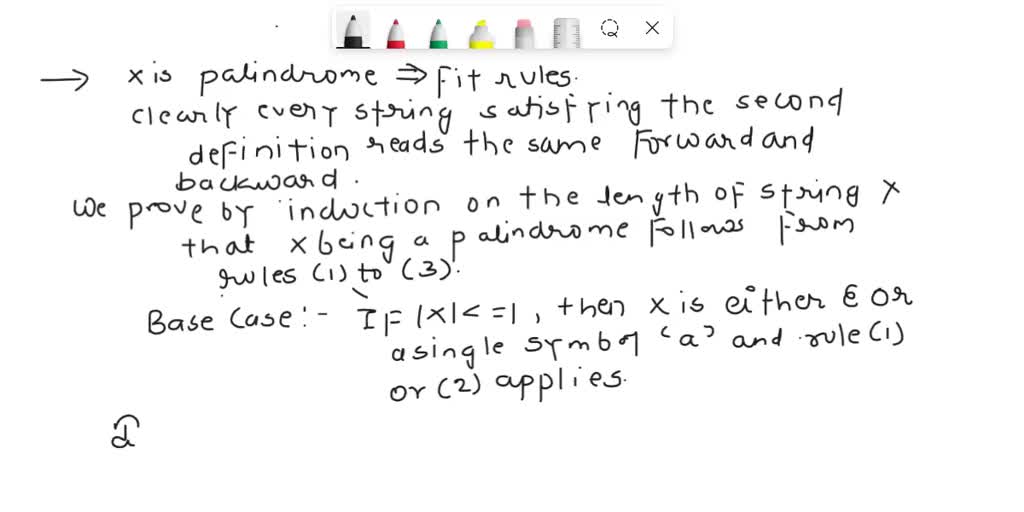 → x is palindrome ⇒ Fit rules.
clearly every string satisfring the second
definition reads the same Forward and
backward.
we prove by induction on the length of string x
that x being a palindrome Follows From
rules (1) to (3).
Base Case:- IF |x|<=1, then x is either ε or
a single symbol 'a' and rule (1)
or (2) applies.